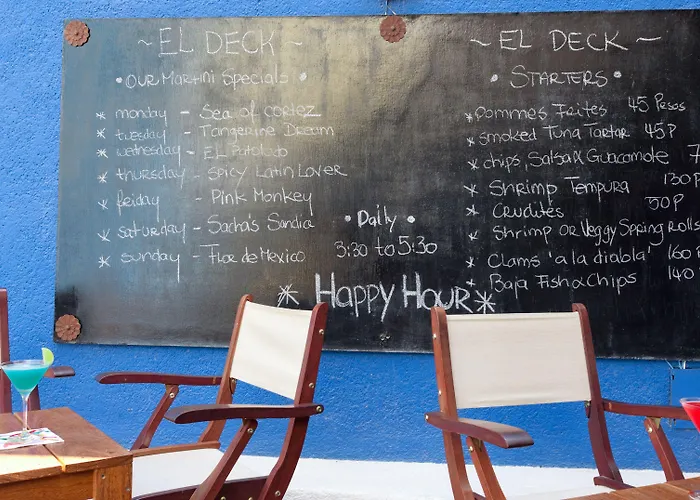 ~ EL DECK ~
• OUR MARTINI SPECIALS •
* monday - Sea of cortez
* tuesday - Tangerine Dream
* wednesday - EL Patuludo
* thursday - Spicy Latin Lover
* friday - Pink Monkey
* saturday - Sacha's Sandia
* sunday - Flor de Mexico
• Daily •
3:30 to 5:30
* Happy Hour *
~ EL DECK ~
• STARTERS •
* Pommes Frites 45 Pesos
* smoked Tuna Tartar 45P
* chips, Salsa & Guacamole
* Shrimp Tempura 130P
* Crudites 50P
* Shrimp OR Veggy Spring Rolls
* Clams 'a la diabla' 160
* Baja Fish & Chips 140